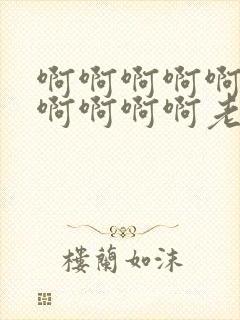 啊啊啊啊啊
啊啊啊啊老
楼蘭如沫